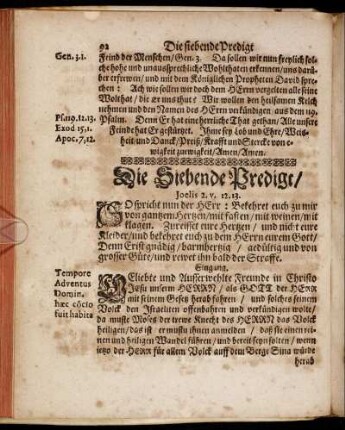 92 Die siebende Predigt
Gen. 3.1. Feind der Menschen/Gen. 3. Da sollen wir nun freylich sol-
che hohe und unaussprechliche Wohlthaten erkennen/ uns darü-
ber erfrewen/ und mit dem Königlichen Propheten David spre-
chen: Ach wie sollen wir doch dem HErrn vergelten alle seine
Wolthat/ die er uns thut? Wir wollen den heilsamen Kelch
nehmen und den Namen des HErrn verkündigen aus dem 119.
Ps. 119.12.13. Psalm. Denn Er hat eine herrliche That gethan/ Alle unsere
Exod 15,1. Feinde hat Er gestürtzet. Ihme sey Lob und Ehre/ Weis-
Apoc. 7,12. heit und Danck/ Preiß/ Krafft und Stercke von e-
wigkeit zu ewigkeit/ Amen/ Amen.
Die Siebende Predigt/
Joelis 2. v. 12.13.
SO spricht nun der HErr: Bekehret euch zu mir
von gantzem Hertzen/ mit fasten/ mit weinen/ mit
klagen. Zureisset ewre Hertzen/ und nicht ewre
Kleider/ und bekehret euch zu dem HErrn eurem Gott/
Denn Er ist gnädig/ barmhertzig/ gedültig und von
grosser Güte/ und rewet ihn bald der Straffe.
Eingang.
Tempore Adventus Domin. hæc cõcio fuit habita
GEliebte und Ausserwehlte Freunde in Christo
Jesu unserm HERRN/ als GOTT der HERR
mit seinem Gesetz herab fuhren/ und solches seinem
Volck den Israeliten offenbahren und verkündigen wolte/
da muste Moses der trewe Knecht des HERRN das Volck
heiligen/ das ist er mustu ihnen anmelden/ daß sie einen rei-
nen und heiligen Wandel führen/ und bereit seyn solten/ wenn
jetzo der HERR für allem Volck auff dem Berge Sina würde
herab